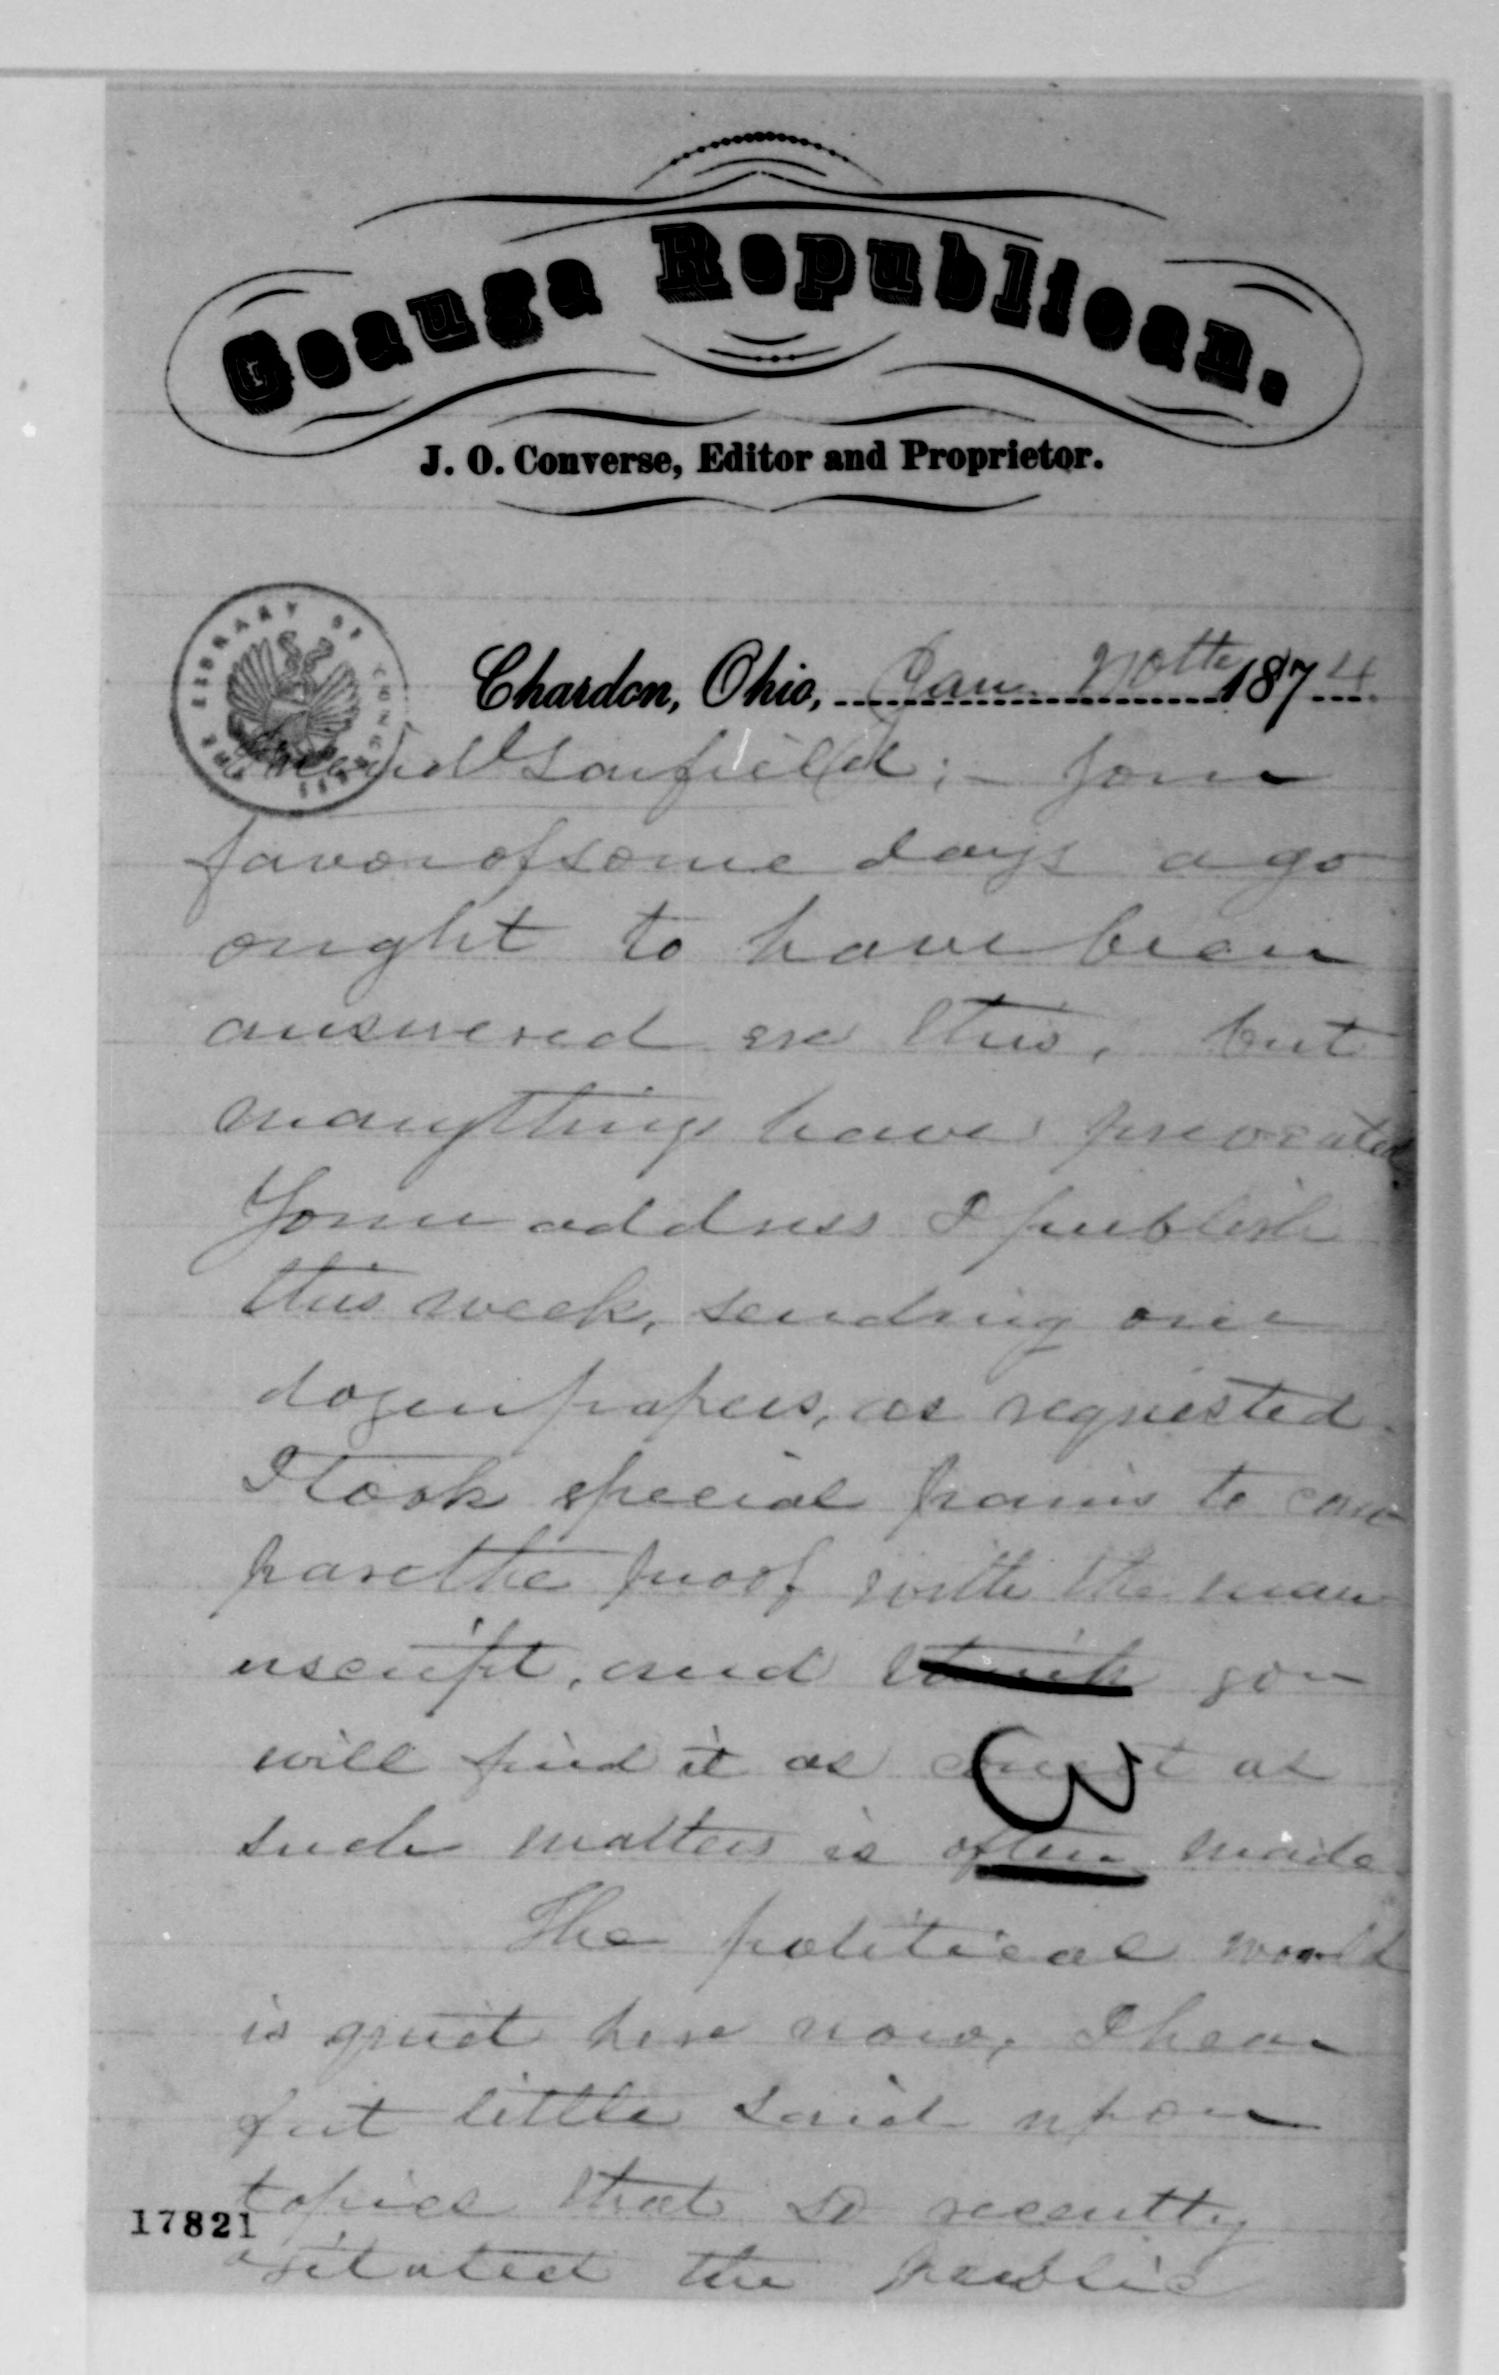 Geauga Republican.
J. O. Converse, Editor and Proprietor.
THE LIBRARY OF CONGRESS
Chardon, Ohio, Jan. 20th 1874.
Friend Garfield:- Your
favor of some days ago
ought to have been
answered ere this, but
many things have prevented
Your address I publish
this week, sending one
dozen papers, as requested.
I took special pains to com
pare the proof with the man
uscript, and think you
will find it as correct as
such matters is often made.
3
The political world
is quiet here now, I hear
but little said upon
topics that so recently
agitated the public
17821